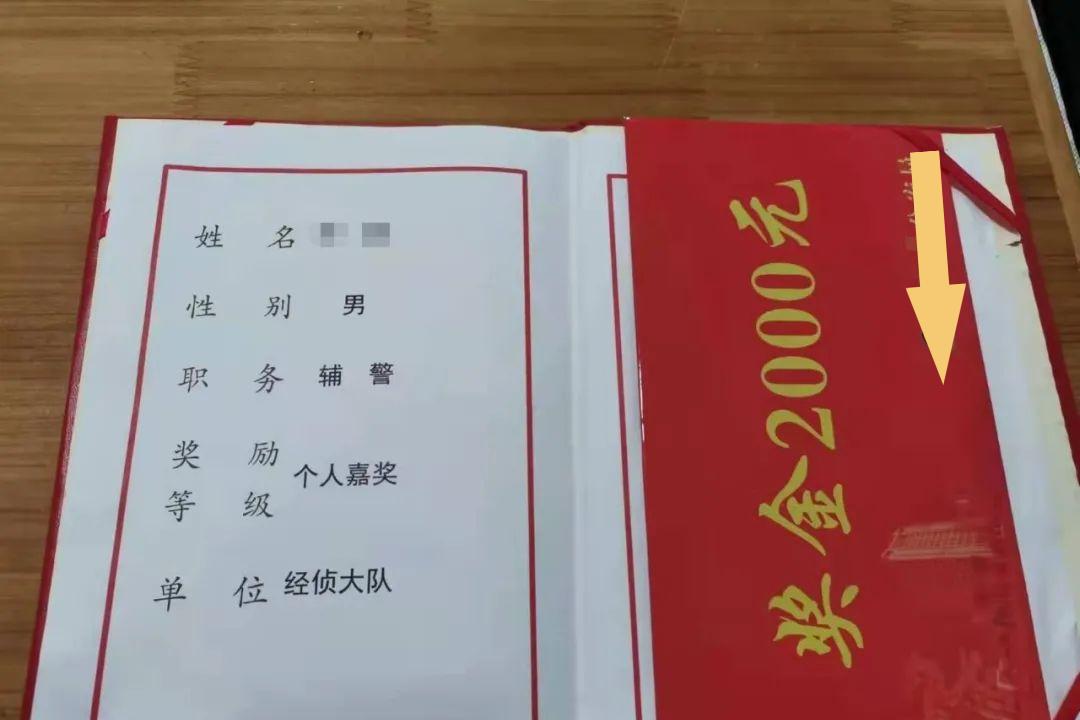 姓 名
性 别 男
职 务 辅 警
奖 励
等 级 个人嘉奖
单 位 经侦大队
奖金2000元